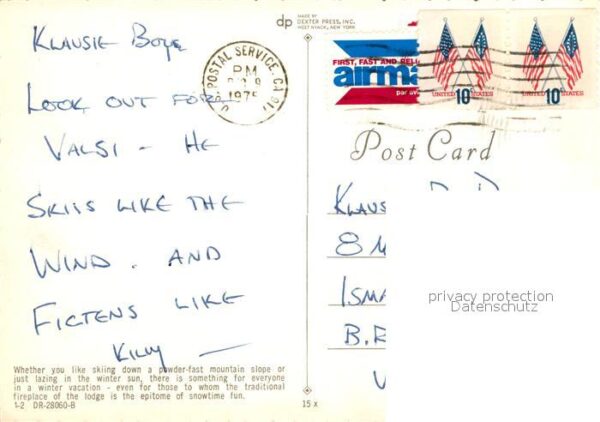 Klausie Boye
Look out for
Valsi - He
Skiis like the
Wind. and
Fictens like
Killy —
Whether you like skiing down a powder-fast mountain slope or
just lazing in the winter sun, there is something for everyone
in a winter vacation - even for those to whom the traditional
fireplace of the lodge is the epitome of snowtime fun.
1-2 DR-28060-B
dp MADE BY
DEXTER PRESS, INC.
WEST NYACK, NEW YORK
POSTAL SERVICE, CA
PM
1975
FIRST, FAST AND RELI
airma
par av
10¢
UNITED STATES
10¢
UNITED STATES
Post Card
Klaus
8 M
Isma
B.R
15 x
privacy protection
Datenschutz